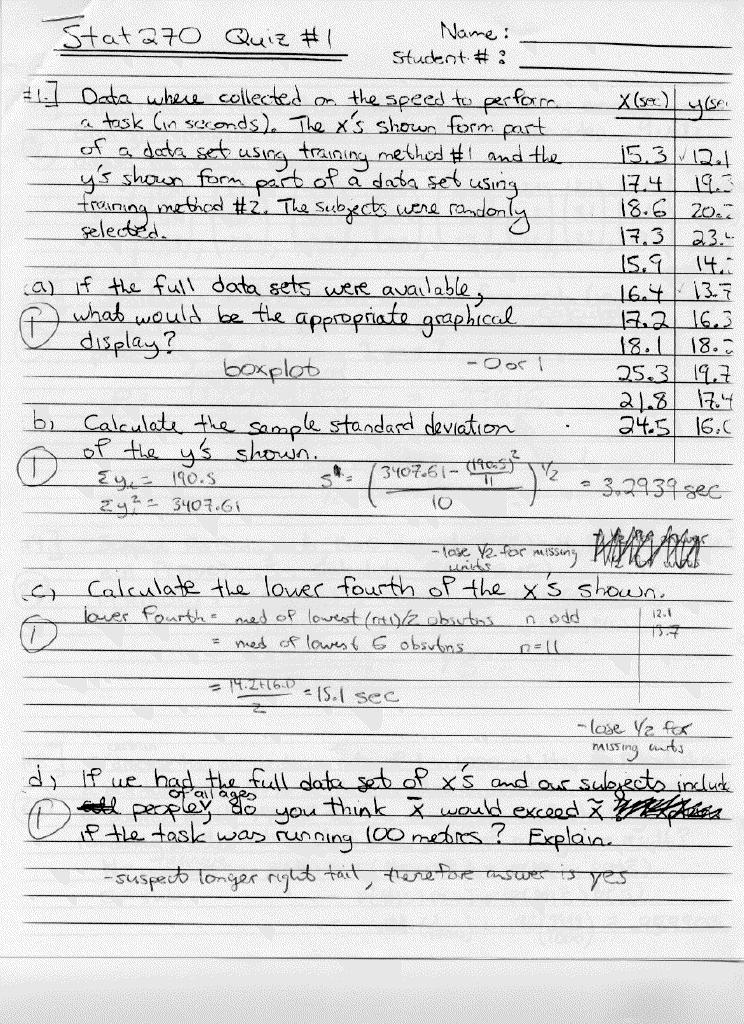 Stat 270 Quiz #1
Name:
Student #:
#1.] Data where collected on the speed to perform
a task (in seconds). The x's shown form part
of a data set using training method #1 and the
y's shown form part of a data set using
training method #2. The subjects were randomly
selected.
x(sec) y(sec
15.3 12.1
17.4 19.3
18.6 20.
17.3 23.
15.9 14.
16.4 13.7
17.2 16.3
18.1 18.
25.3 19.7
21.8 17.4
24.5 16.
a) If the full data sets were available,
① what would be the appropriate graphical
display?
boxplot - 0 or 1
b) Calculate the sample standard deviation
① of the y's shown.
Σyᵢ = 190.5
Σyᵢ² = 3407.61
s = ((3407.61 - (190.5)²/11)/10)^1/2 = 3.2939 sec
- lose 1/2 for missing
units
c) Calculate the lower fourth of the x's shown.
① lower fourth = med of lowest (n+1)/2 obsvtns n odd
= med of lowest 6 obsvtns n=11
12.1
13.7
= (14.2+16.0)/2 = 15.1 sec
- lose 1/2 for
missing units
d) If we had the full data set of x's and our subjects include
① people of all ages, do you think x̄ would exceed x̃
if the task was running 100 metres? Explain.
- suspect longer right tail, therefore answer is yes